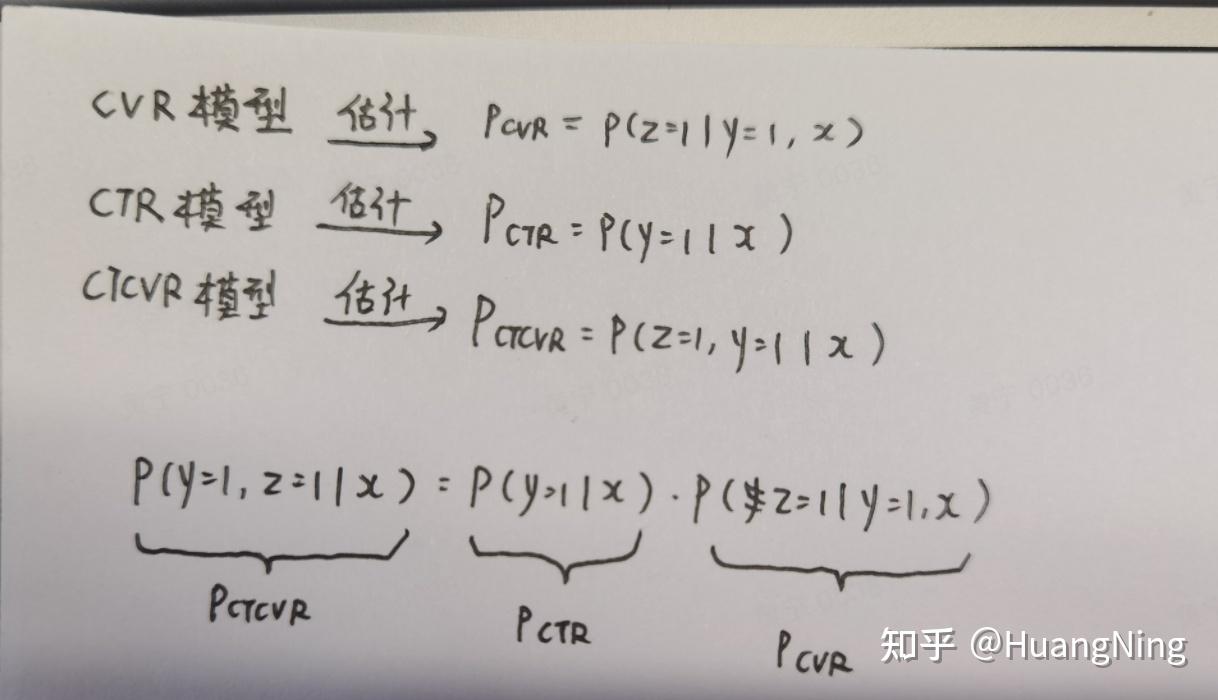 CVR模型 估计 PCVR = P(z=1|y=1, x)
CTR模型 估计 PCTR = P(y=1|x)
CTCVR模型 估计 PCTCVR = P(z=1, y=1|x)
P(y=1, z=1|x) = P(y=1|x) · P(z=1|y=1,x)
PCTCVR PCTR PCVR
知乎 @HuangNing